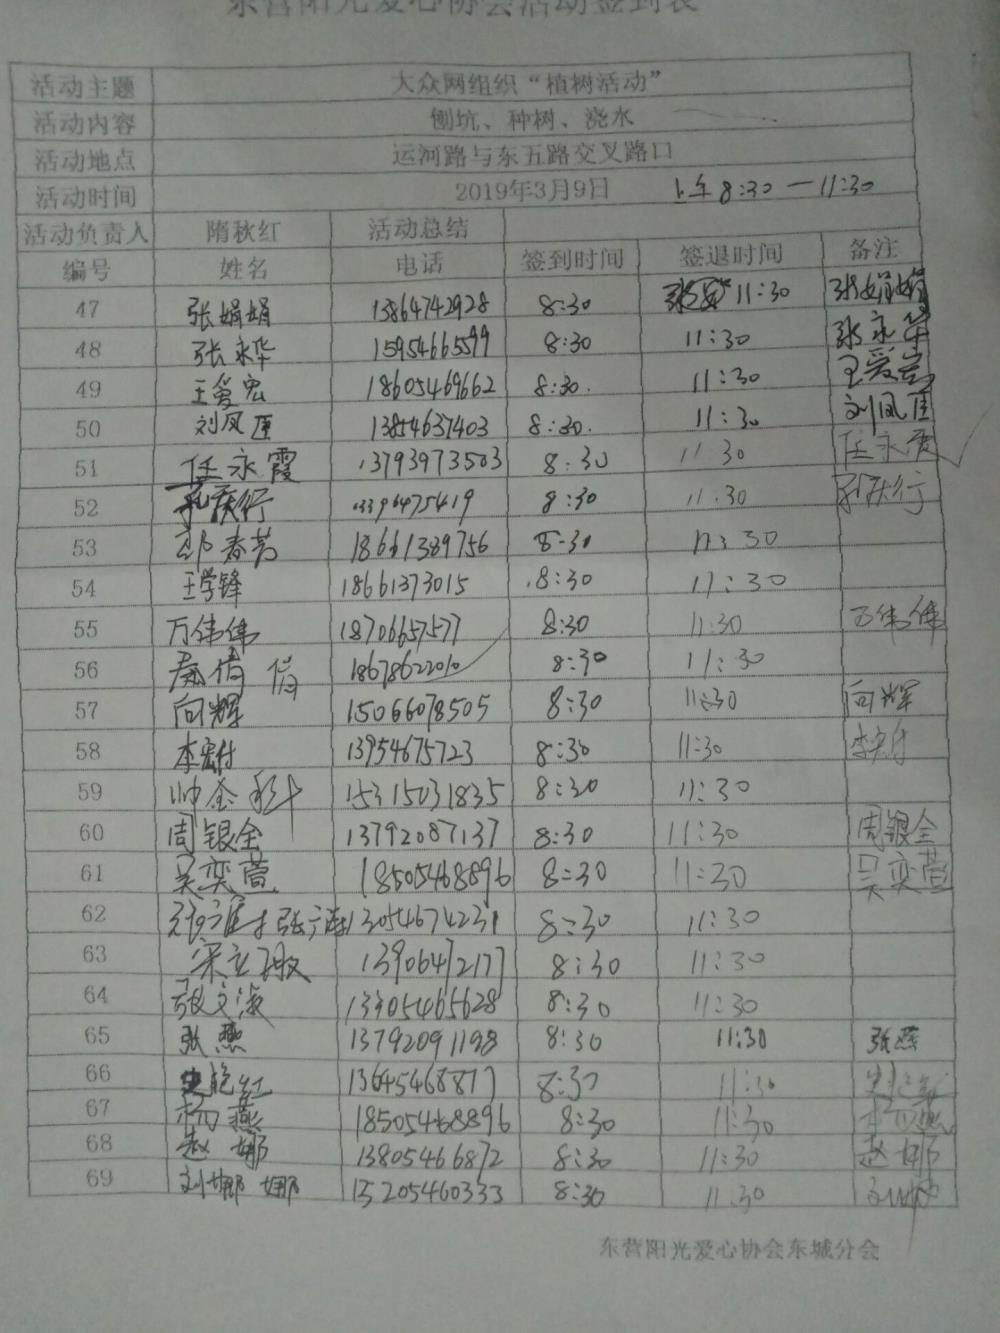 东营阳光爱心协会活动签到表
活动主题 大众网组织“植树活动”
活动内容 刨坑、种树、浇水
活动地点 运河路与东五路交叉路口
活动时间 2019年3月9日 上午8:30—11:30
活动负责人 隋秋红 活动总结
编号 姓名 电话 签到时间 签退时间 备注
47 张娟娟 13864742928 8:30 11:30 张娟娟
48 张永华 15954665599 8:30 11:30 张永华
49 王爱宏 18605469662 8:30. 11:30 王爱宏
50 刘凤匣 13854637403 8:30. 11:30 刘凤匣
51 任永霞 13793973503 8:30 11:30 任永霞
52 孔庆行 13396475419 8:30 11:30 孔庆行
53 春芳 18661389756 8-30 11:30
54 王学锋 18661373015 8:30 11:30
55 万伟伟 18706657577 8:30 11:30 万伟伟
56 倩 倩 18678622010 8:30 11:30
57 向辉 15066078505 8:30 11:30 向辉
58 李宏付 13954675723 8:30 11:30 李宏付
59 帅金 15315031835 8:30 11:30
60 周银全 13792087137 8:30 11:30 周银全
61 吴奕萱 18505468896 8:30 11:30 吴奕萱
62 13054674231 8:30 11:30
63 宋立敏 13906472177 8:30 11:30
64 敬文海 13305465628 8:30 11:30
65 张燕 13792091198 8:30 11:30 张燕
66 艳红 13645468877 8:30 11:30
67 杨燕 18505468896 8:30 11:30 杨燕
68 赵娜 13805466872 8:30 11:30 赵娜
69 刘娜娜 15205460333 8:30 11:30
东营阳光爱心协会东城分会